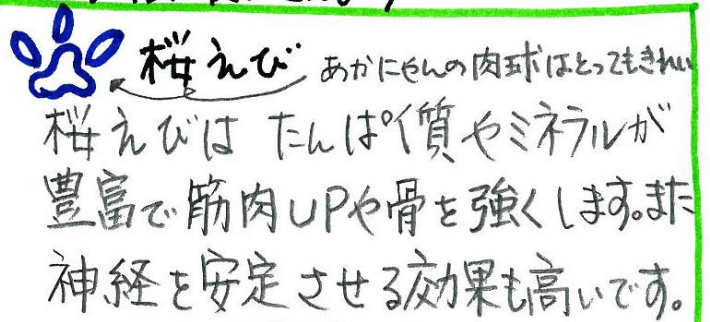 桜えび あかにゃんの肉球はとってもきれい
桜えびは たんぱく質やミネラルが
豊富で筋肉UPや骨を強くします。また
神経を安定させる効果も高いです。